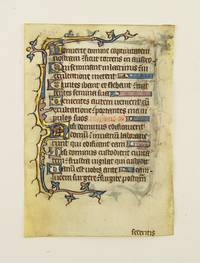 Converte domine captivitatem
nostram sicut torrens in austro
Qui seminant in lacrimis in
exultatione metent
Euntes ibant et flebant mit
tentes semina sua
Venientes autem venient cum
exultatione portantes ma
nipulos suos
Nisi dominus edificaverit
domum in vanum laboraver
qui edificant eam
Nisi dominus custodierit civita
frustra vigilat qui custodit
vanum est vobis ante
lucem surgere surgite postquam
sederitis